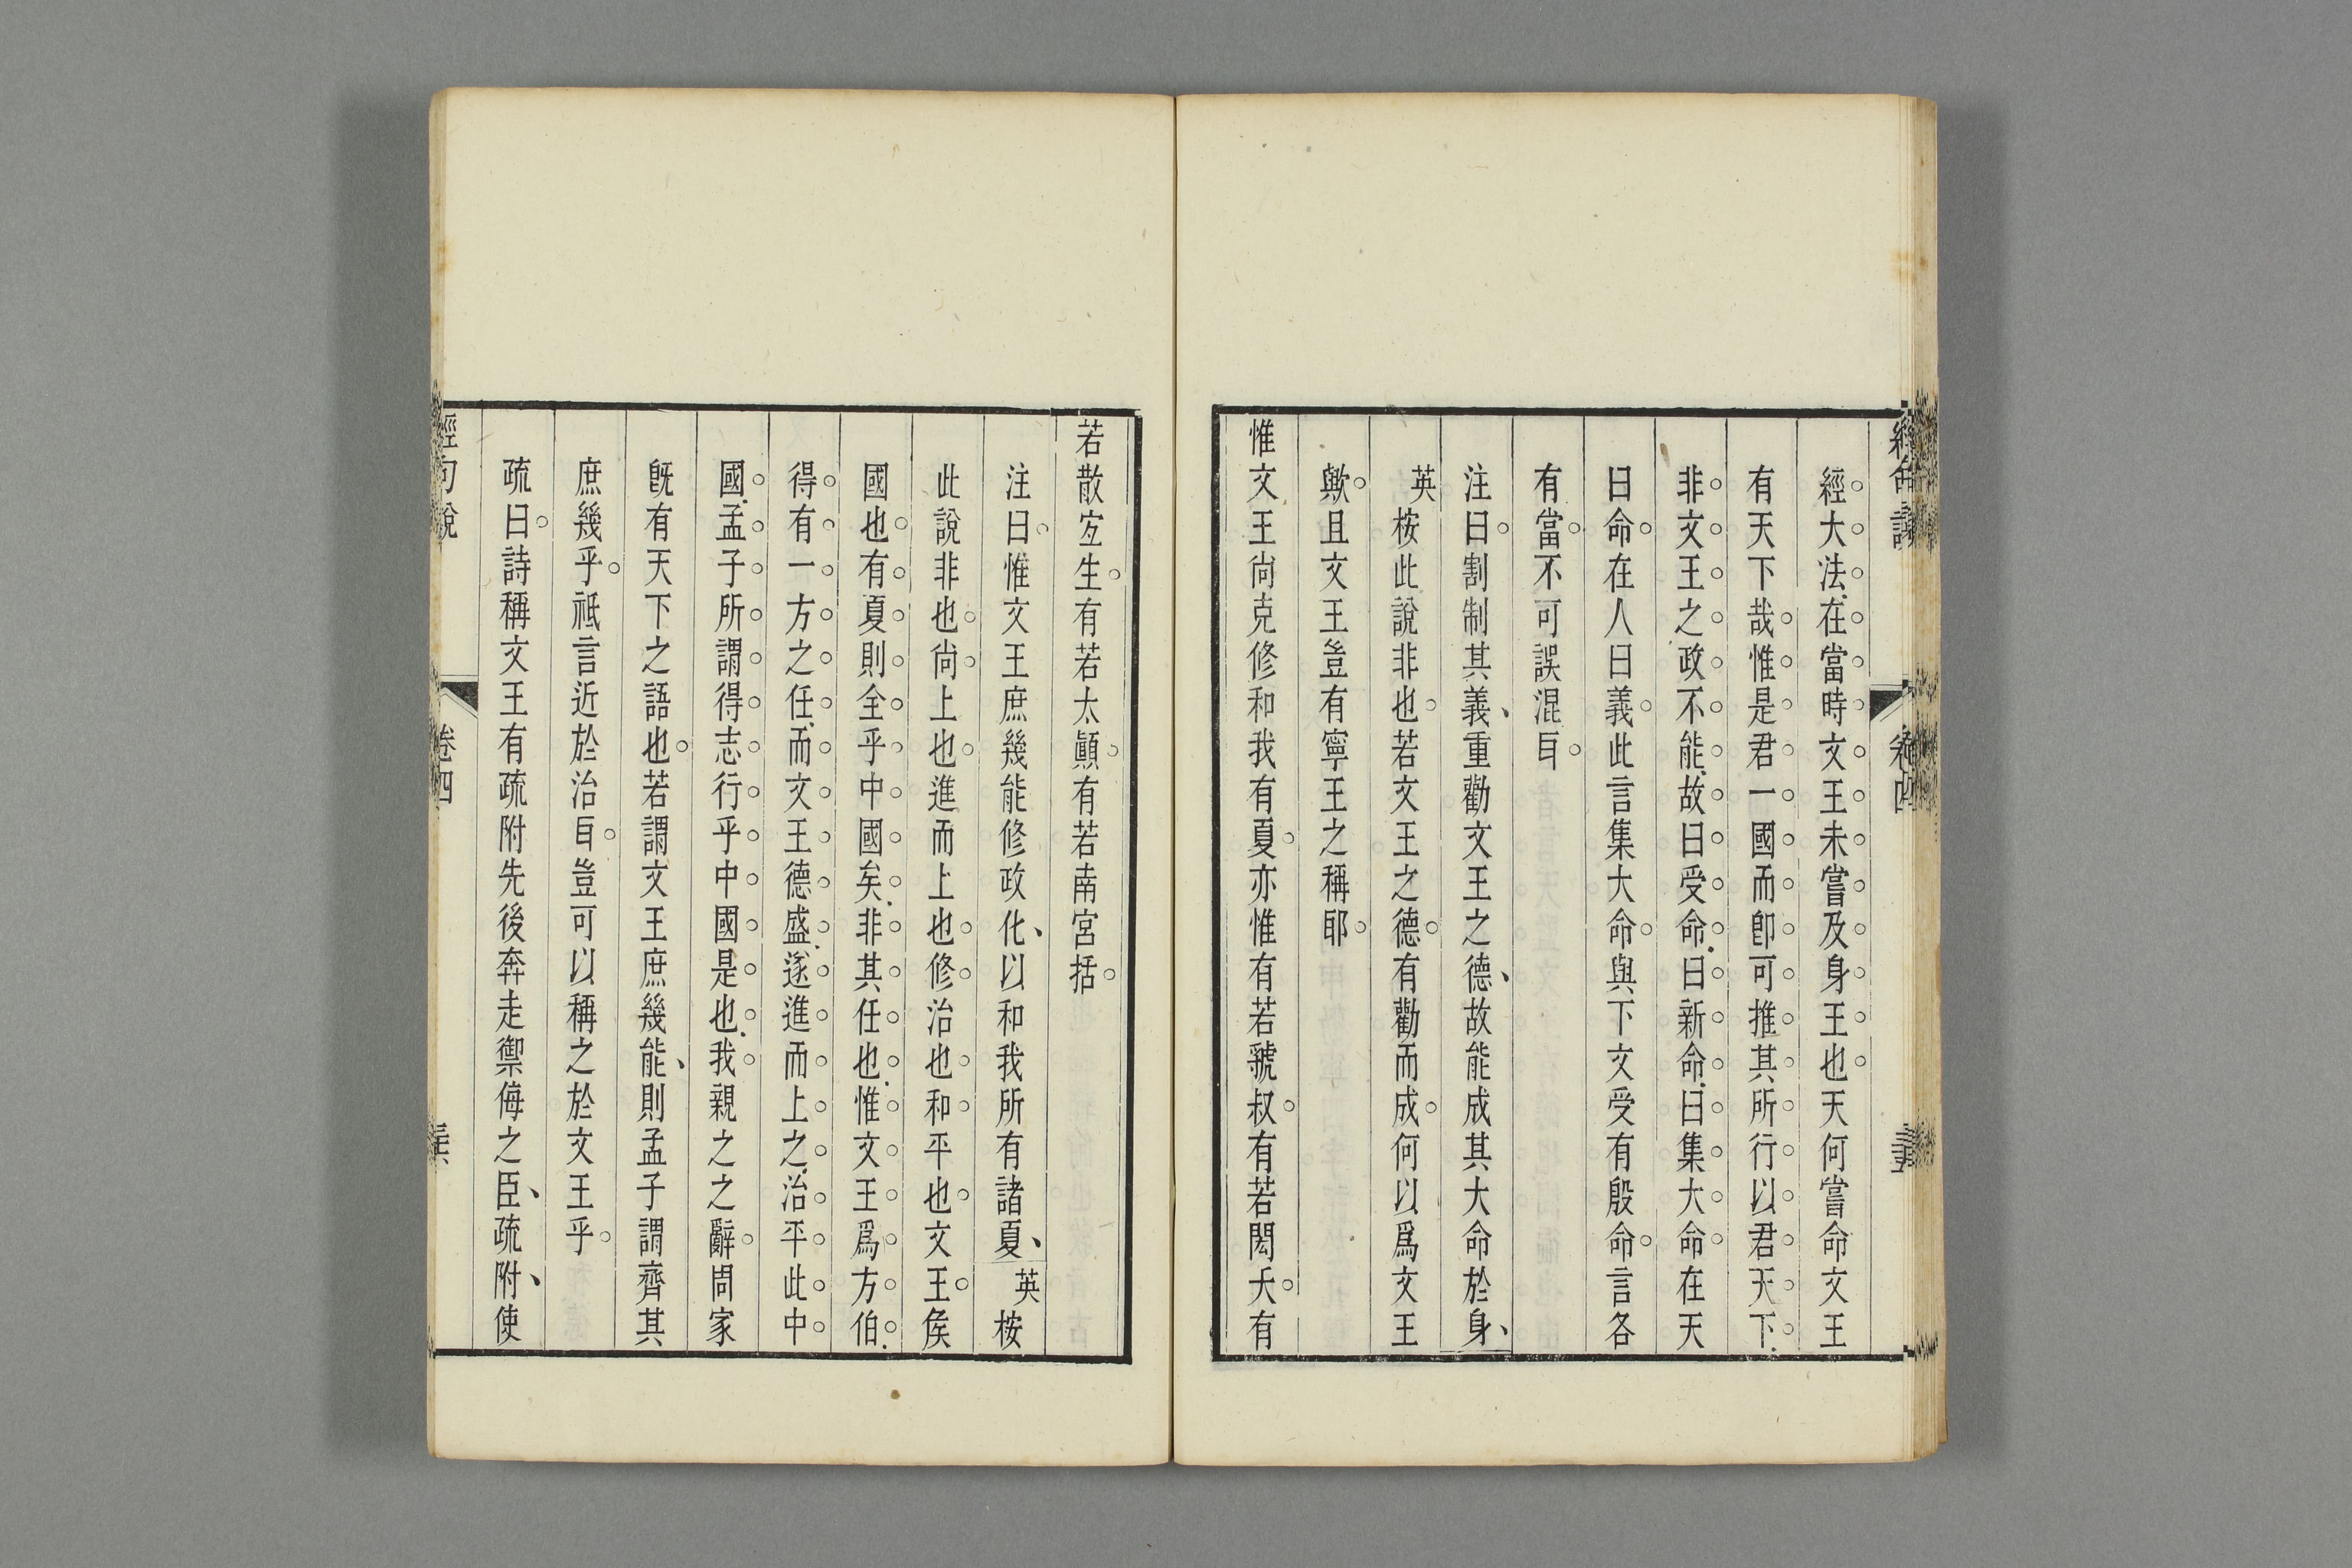 經大法在當時文王未嘗及身王也天何嘗命文王
有天下哉惟是君一國而卽可推其所行以君天下
非文王之政不能故曰受命曰新命曰集大命在天
曰命在人曰義此言集大命與下文受有殷命言各
有當不可誤混耳
注曰割制其義重勸文王之德故能成其大命於身
英桉此說非也若文王之德有勸而成何以爲文王
歟且文王豈有寧王之稱耶
惟文王尙克修和我有夏亦惟有若虢叔有若閎夭有
若散宐生有若太顚有若南宮括
注曰惟文王庶幾能修政化以和我所有諸夏英桉
此說非也尙上也進而上也修治也和平也文王矦
國也有夏則全乎中國矣非其任也惟文王爲方伯
得有一方之任而文王德盛遂進而上之治平此中
國孟子所謂得志行乎中國是也我親之之辭周家
旣有天下之語也若謂文王庶幾能則孟子謂齊其
庶幾乎祗言近於治耳豈可以稱之於文王乎
疏曰詩稱文王有疏附先後奔走禦侮之臣疏附使
經句說
卷四